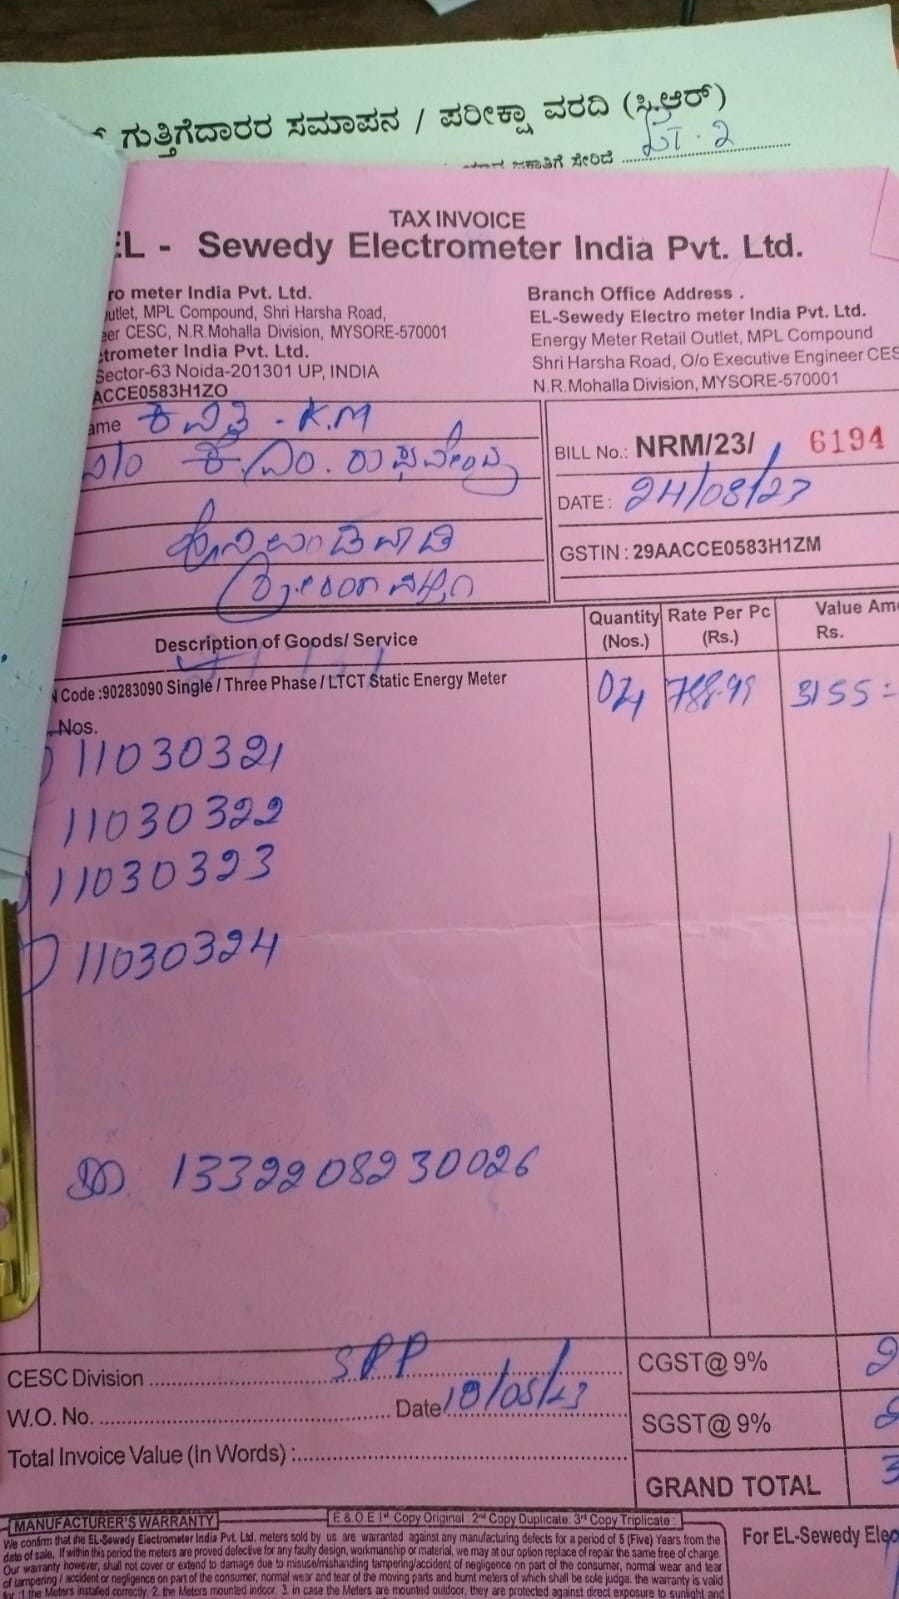 ಗುತ್ತಿಗೆದಾರರ ಸಮಾಪನ / ಪರೀಕ್ಷಾ ವರದಿ (ಸಿ.ಆರ್)
ಜಕಾತಿಗೆ ಸೇರಿದೆ
TAX INVOICE
EL - Sewedy Electrometer India Pvt. Ltd.
ro meter India Pvt. Ltd.
utlet, MPL Compound, Shri Harsha Road,
eer CESC, N.R.Mohalla Division, MYSORE-570001
ctrometer India Pvt. Ltd.
Sector-63 Noida-201301 UP, INDIA
ACCE0583H1ZO
Branch Office Address .
EL-Sewedy Electro meter India Pvt. Ltd.
Energy Meter Retail Outlet, MPL Compound
Shri Harsha Road, O/o Executive Engineer CES
N.R.Mohalla Division, MYSORE-570001
ame K.M
BILL No.: NRM/23/ 6194
DATE : 24/08/23
GSTIN : 29AACCE0583H1ZM
Description of Goods/ Service
Quantity (Nos.)
Rate Per Pc (Rs.)
Value Am Rs.
N Code :90283090 Single / Three Phase / LTCT Static Energy Meter
04 788.99 3155=
Nos.
11030321
11030322
11030323
11030324
1332208230026
CESC Division SRP
W.O. No. Date 18/08/23
Total Invoice Value (In Words) :
CGST@ 9%
SGST@ 9%
GRAND TOTAL
MANUFACTURER'S WARRANTY
E & O.E 1st Copy Original : 2nd Copy Duplicate: 3rd Copy Triplicate :
We confirm that the EL-Sewedy Electrometer India Pvt. Ltd. meters sold by us are warranted against any manufacturing defects for a period of 5 (Five) Years from the
date of sale. If within this period the meters are proved defective for any faulty design, workmanship or material, we may at our option replace of repair the same free of charge.
Our warranty however, shall not cover or extend to damage due to misuse/mishandling tampering/accident of negligence on part of the consumer, normal wear and tear
of tampering / accident or negligence on part of the consumer, normal wear and tear of the moving parts and burnt meters of which shall be sole judge. the warranty is valid
for :1 the Meters installed correctly. 2. the Meters mounted indoor. 3. in case the Meters are mounted outdoor, they are protected against direct exposure to sunlight and
For EL-Sewedy Elec